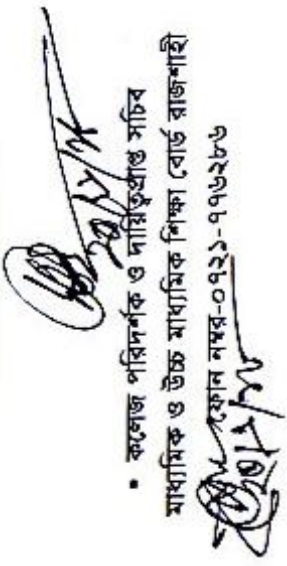 কলেজ পরিদর্শক ও দায়িত্বপ্রাপ্ত সচিব
মাধ্যমিক ও উচ্চ মাধ্যমিক শিক্ষা বোর্ড রাজশাহী
ফোন নম্বর-০৭২১-৭৭৬২৮৬